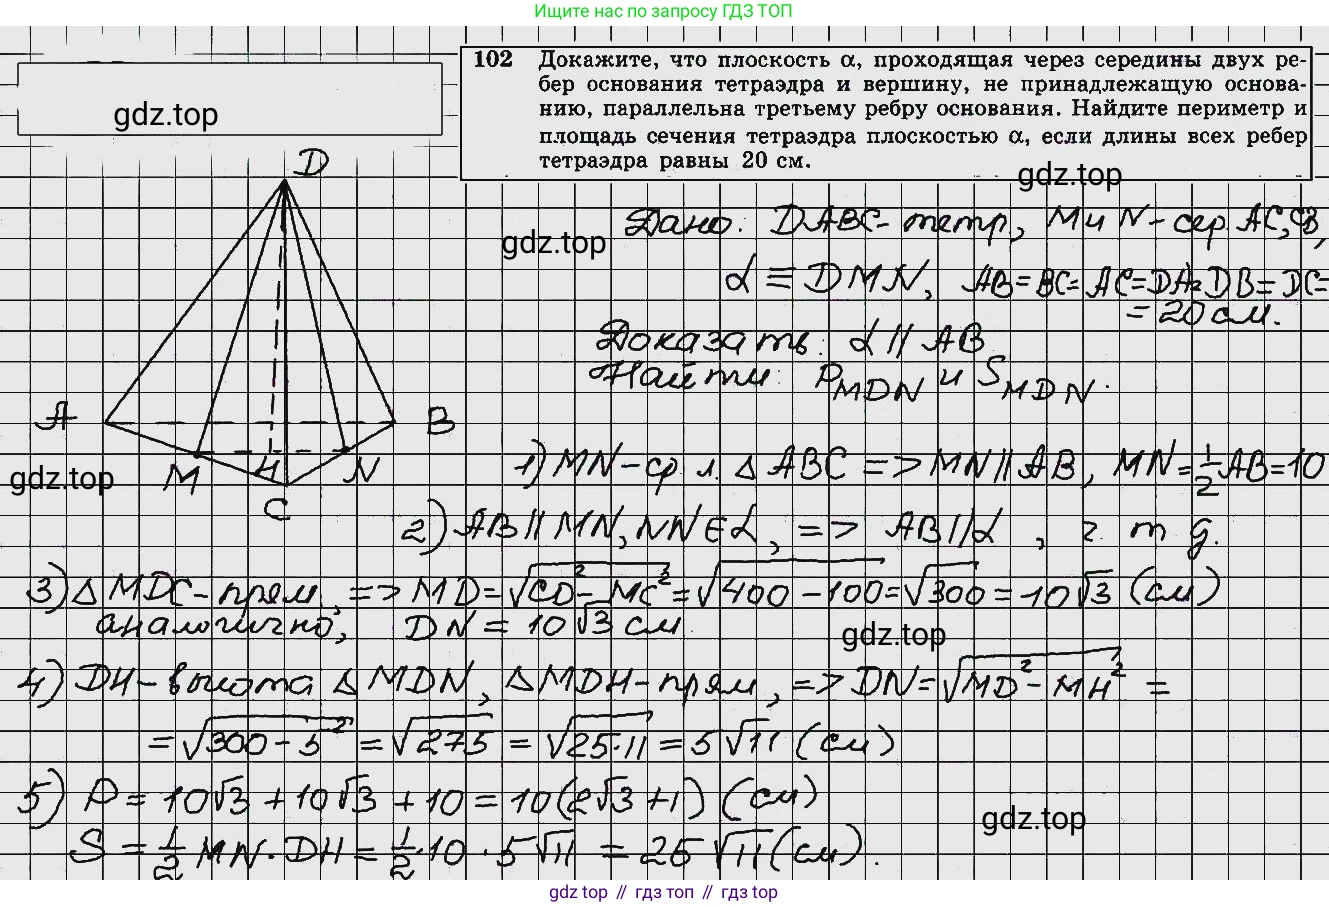 Ищите нас по запросу ГДЗ ТОП
gdz.top
102 Докажите, что плоскость α, проходящая через середины двух ре-
бер основания тетраэдра и вершину, не принадлежащую основа-
нию, параллельна третьему ребру основания. Найдите периметр и
площадь сечения тетраэдра плоскостью α, если длины всех ребер
тетраэдра равны 20 см.
gdz.top
D
A
B
M
H
N
C
gdz.top
gdz.top
Дано: DABC-тетр, M и N-сер. AC, CB,
α ≡ DMN, AB=BC=AC=DA=DB=DC=
=20 см.
Доказать: α // AB
Найти: P_MDN и S_MDN.
1) MN-ср л. △ ABC => MN // AB, MN = 1/2 AB = 10
2) AB // MN, NN ∈ α, => AB // α, ч т д.
3) △ MDC-прям, => MD = √(CD² - MC²) = √(400 - 100) = √300 = 10√3 (см)
аналогично, DN = 10√3 см
gdz.top
4) DH-высота △ MDN, △ MDH-прям, => DN = √(MD² - MH²) =
= √(300 - 5²) = √275 = √(25·11) = 5√11 (см)
5) P = 10√3 + 10√3 + 10 = 10(2√3 + 1) (см)
gdz.top
S = 1/2 MN · DH = 1/2 · 10 · 5√11 = 25√11 (см).
gdz top // гдз топ // гдз top